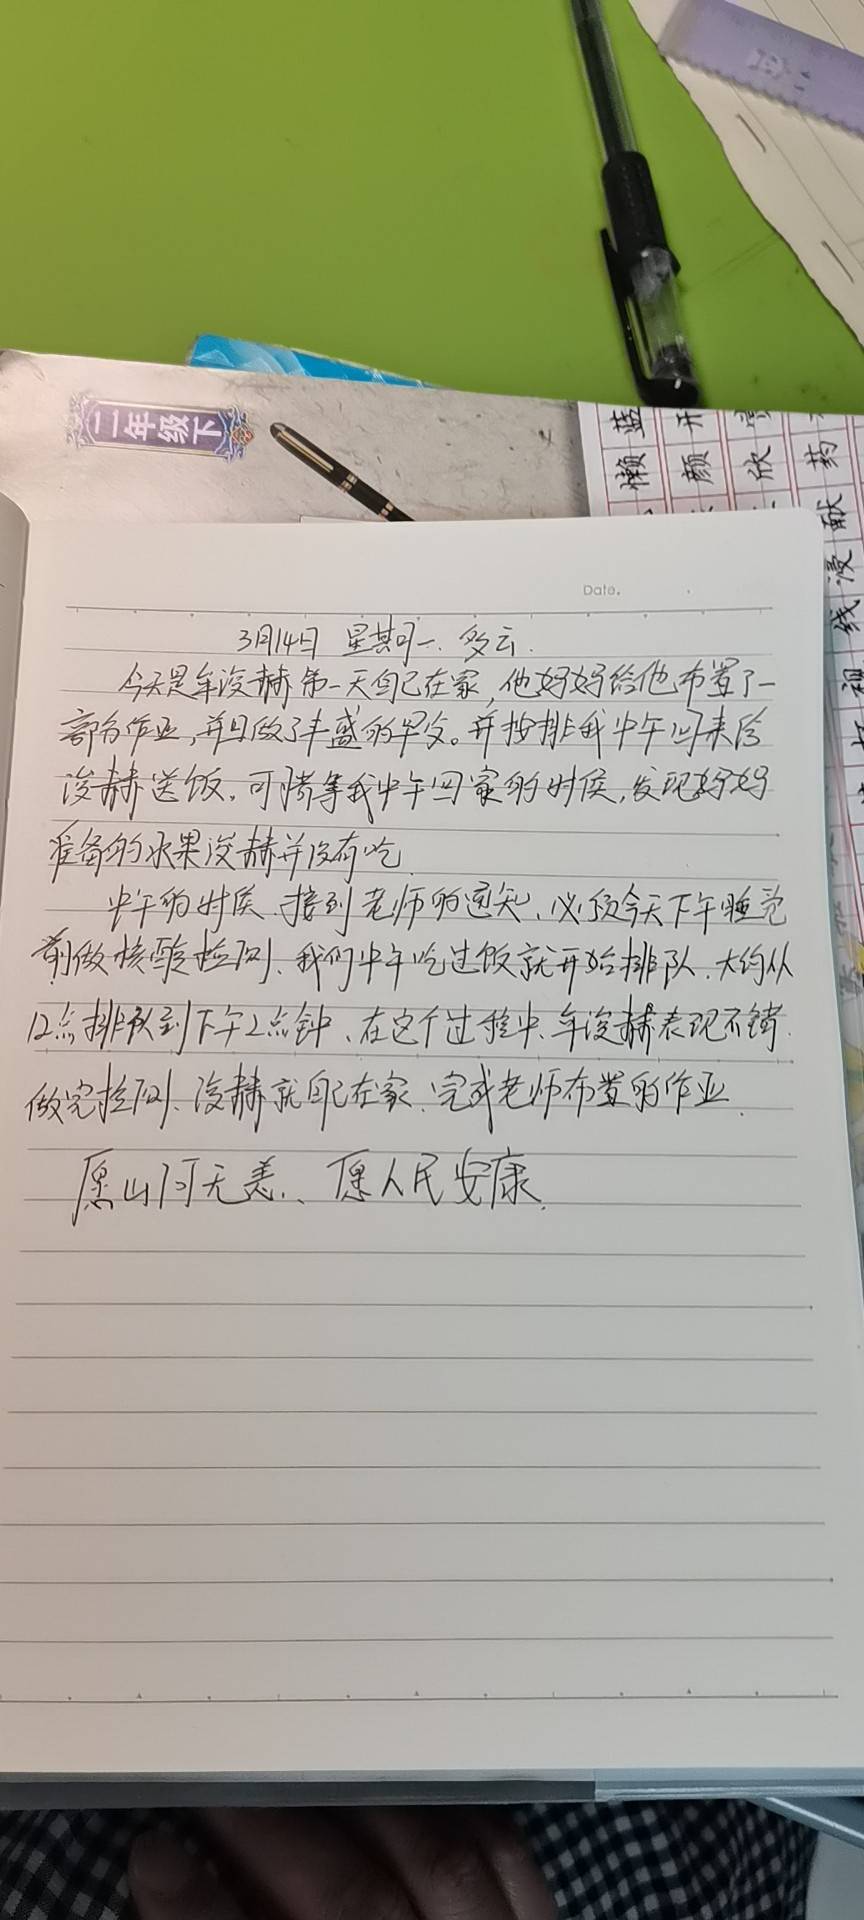 二年级下
懒 蓝
颜 开
欣
药
献
漫
线
视
Date.
3月14日 星期一. 多云.
今天是牟浚赫第一天自己在家, 他妈妈给他布置了一
部分作业, 并且做了丰盛的早饭。并按排我中午回来给
浚赫送饭. 可晴等我中午回家的时候, 发现妈妈
准备的水果浚赫并没有吃.
中午的时候. 接到老师的通知、必须今天下午睡觉
前做核酸检测、我们中午吃过饭就开始排队. 大约从
12点排队到下午2点钟、在这个过程中、牟浚赫表现不错.
做完检测、浚赫就自己在家. 完成老师布置的作业.
愿山河无恙.、愿人民安康.